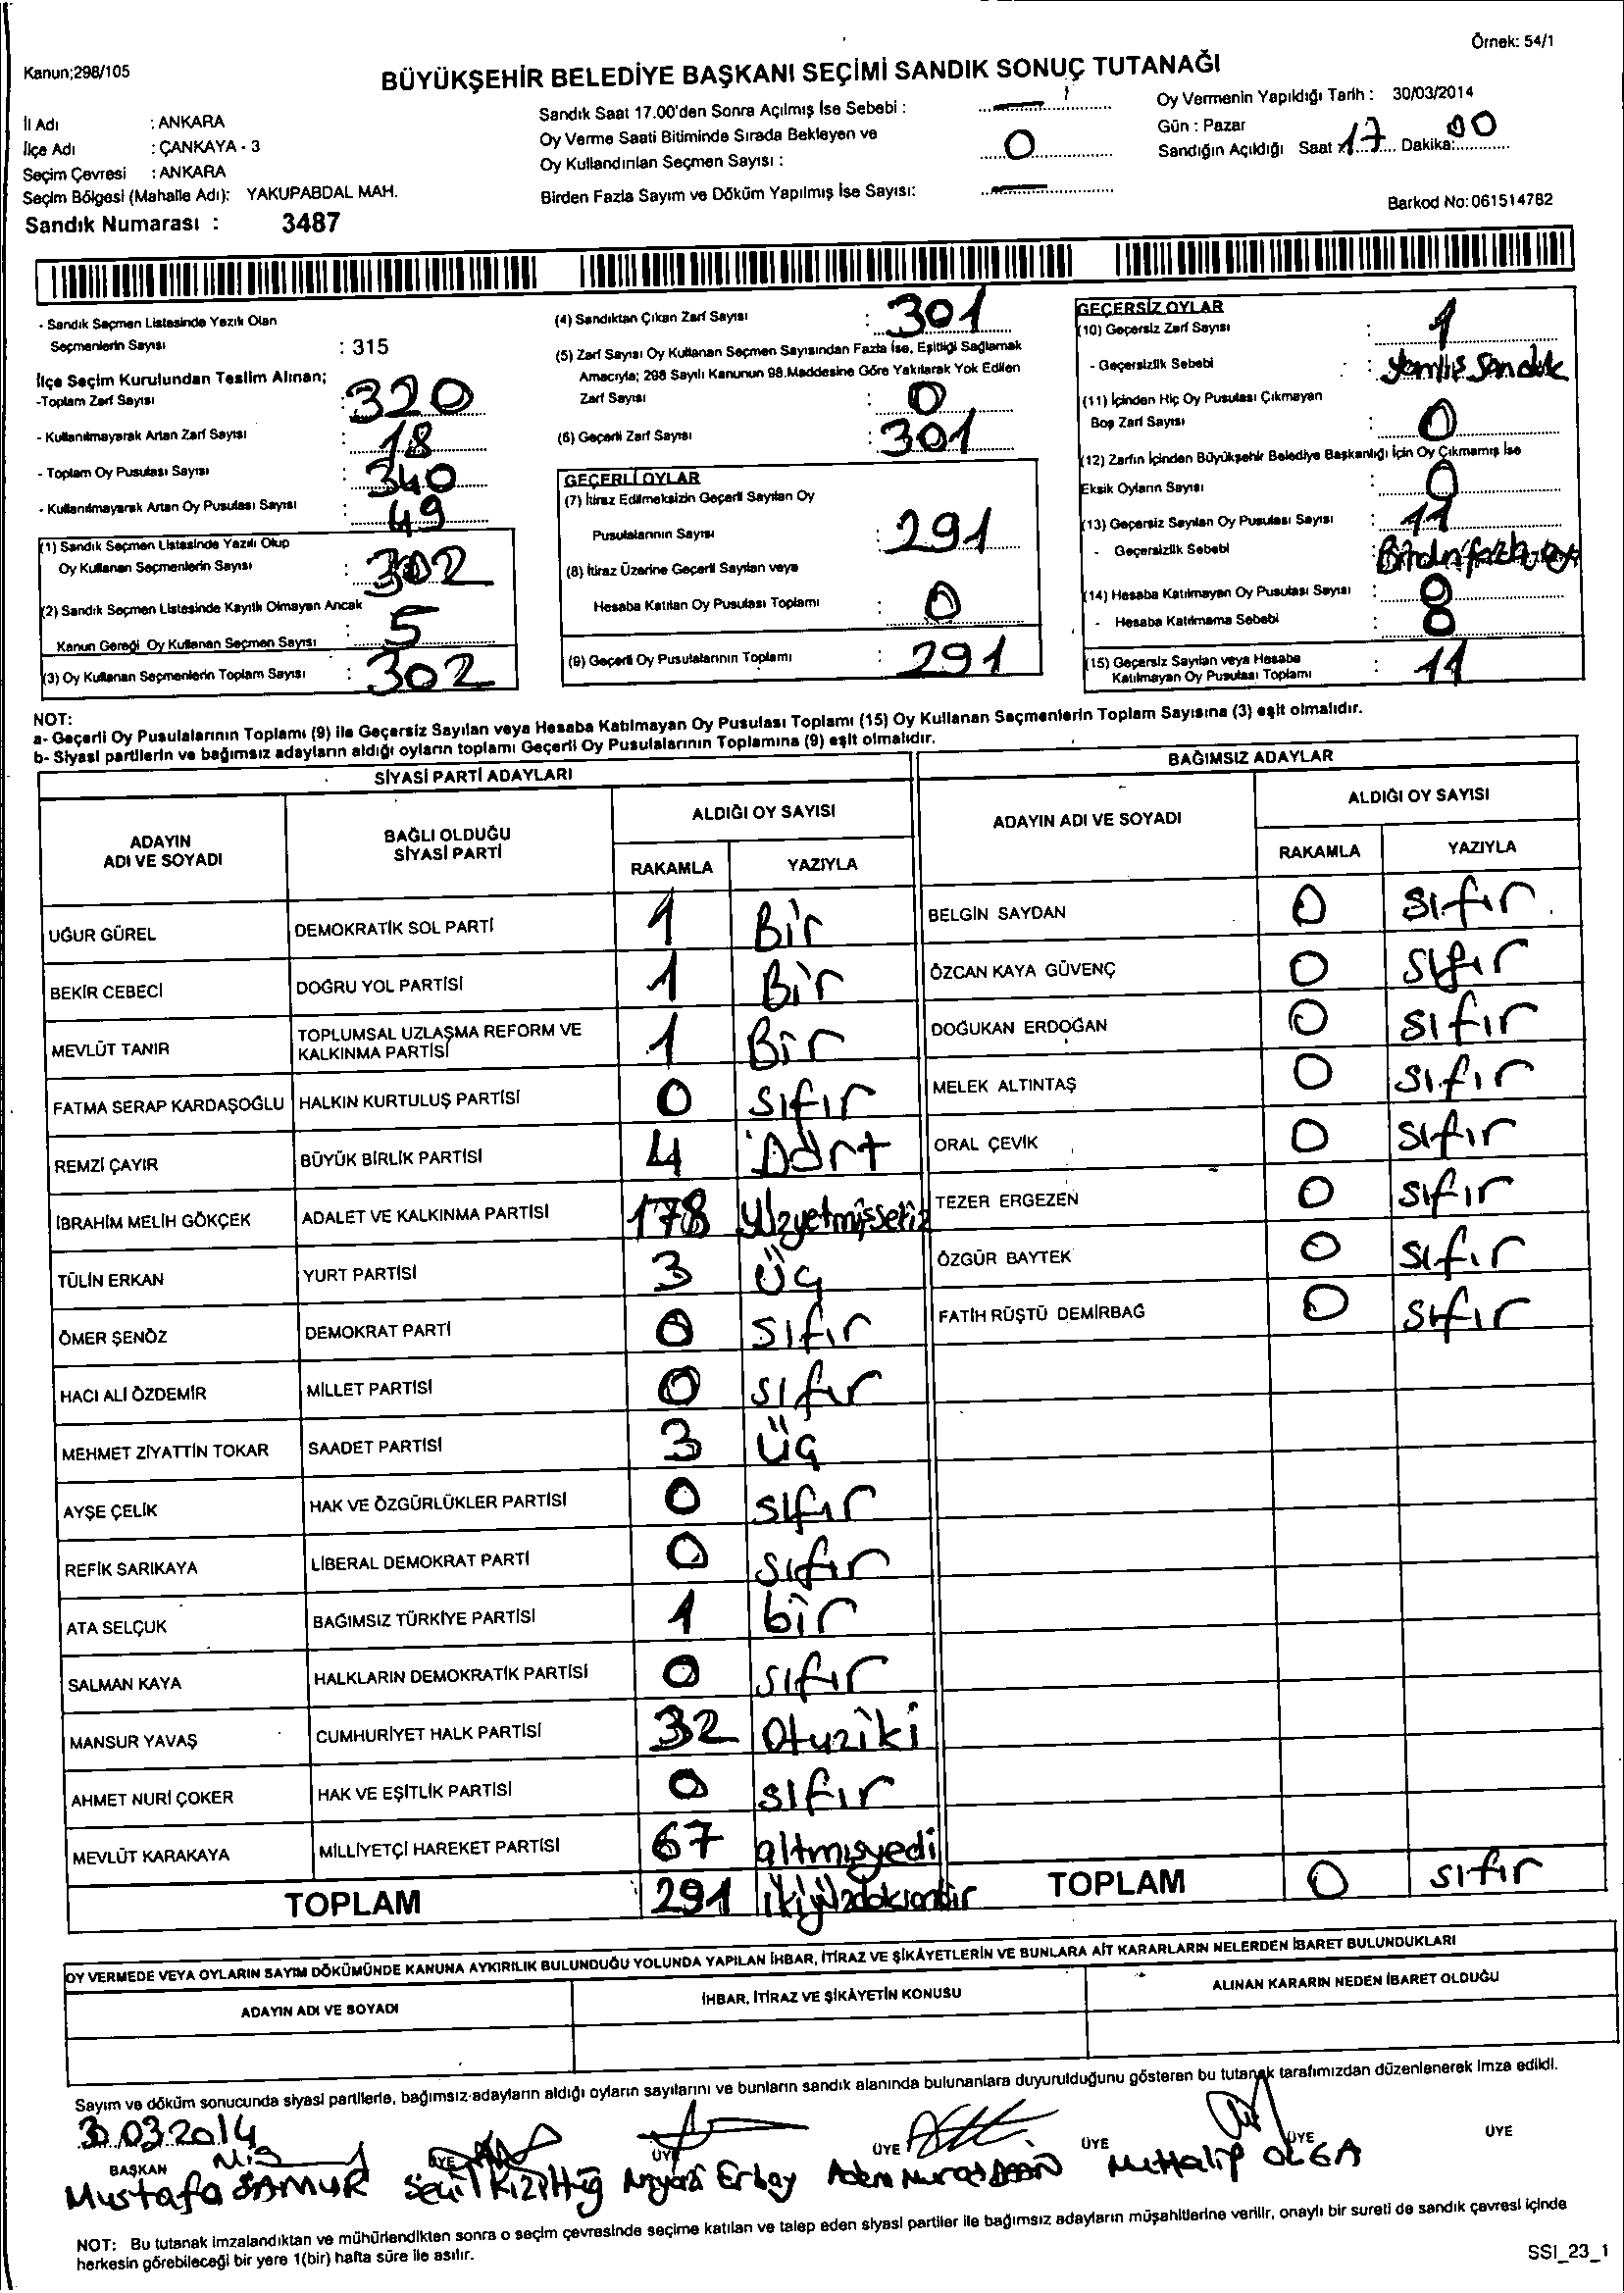 Örnek: 54/1
Kanun;298/105
BÜYÜKŞEHİR BELEDİYE BAŞKANI SEÇİMİ SANDIK SONUÇ TUTANAĞI
İl Adı : ANKARA
İlçe Adı : ÇANKAYA - 3
Seçim Çevresi : ANKARA
Seçim Bölgesi (Mahalle Adı): YAKUPABDAL MAH.
Sandık Numarası : 3487
Sandık Saat 17.00'den Sonra Açılmış İse Sebebi : —
Oy Verme Saati Bitiminde Sırada Bekleyen ve
Oy Kullandırılan Seçmen Sayısı : 0
Birden Fazla Sayım ve Döküm Yapılmış İse Sayısı: —
Oy Vermenin Yapıldığı Tarih : 30/03/2014
Gün : Pazar
Sandığın Açıldığı Saat : 17 Dakika: 00
Barkod No: 061514782
- Sandık Seçmen Listesinde Yazılı Olan
Seçmenlerin Sayısı : 315
İlçe Seçim Kurulundan Teslim Alınan;
-Toplam Zarf Sayısı : 320
- Kullanılmayarak Artan Zarf Sayısı : 18
- Toplam Oy Pusulası Sayısı : 340
- Kullanılmayarak Artan Oy Pusulası Sayısı : 49
(1) Sandık Seçmen Listesinde Yazılı Olup
Oy Kullanan Seçmenlerin Sayısı : 302
(2) Sandık Seçmen Listesinde Kayıtlı Olmayan Ancak
Kanun Gereği Oy Kullanan Seçmen Sayısı : 5
(3) Oy Kullanan Seçmenlerin Toplam Sayısı : 302
(4) Sandıktan Çıkan Zarf Sayısı : 301
(5) Zarf Sayısı Oy Kullanan Seçmen Sayısından Fazla İse, Eşitliği Sağlamak
Amacıyla; 298 Sayılı Kanunun 98.Maddesine Göre Yakılarak Yok Edilen
Zarf Sayısı : 0
(6) Geçerli Zarf Sayısı : 301
GEÇERLİ OYLAR
(7) İtiraz Edilmeksizin Geçerli Sayılan Oy
Pusulalarının Sayısı : 291
(8) İtiraz Üzerine Geçerli Sayılan veya
Hesaba Katılan Oy Pusulası Toplamı : 0
(9) Geçerli Oy Pusulalarının Toplamı : 291
GEÇERSİZ OYLAR
(10) Geçersiz Zarf Sayısı : 1
- Geçersizlik Sebebi : Yanlış Sandık
(11) İçinden Hiç Oy Pusulası Çıkmayan
Boş Zarf Sayısı : 0
(12) Zarfın İçinden Büyükşehir Belediye Başkanlığı İçin Oy Çıkmamış İse
Eksik Oyların Sayısı : 0
(13) Geçersiz Sayılan Oy Pusulası Sayısı : 11
- Geçersizlik Sebebi : Birden fazla oy
(14) Hesaba Katılmayan Oy Pusulası Sayısı : 0
- Hesaba Katılmama Sebebi : 0
(15) Geçersiz Sayılan veya Hesaba
Katılmayan Oy Pusulası Toplamı : 11
NOT:
a- Geçerli Oy Pusulalarının Toplamı (9) ile Geçersiz Sayılan veya Hesaba Katılmayan Oy Pusulası Toplamı (15) Oy Kullanan Seçmenlerin Toplam Sayısına (3) eşit olmalıdır.
b- Siyasi partilerin ve bağımsız adayların aldığı oyların toplamı Geçerli Oy Pusulalarının Toplamına (9) eşit olmalıdır.
SİYASİ PARTİ ADAYLARI
ADAYIN ADI VE SOYADI
BAĞLI OLDUĞU SİYASİ PARTİ
ALDIĞI OY SAYISI
RAKAMLA YAZIYLA
UĞUR GÜREL DEMOKRATİK SOL PARTİ 1 Bir
BEKİR CEBECİ DOĞRU YOL PARTİSİ 1 Bir
MEVLÜT TANIR TOPLUMSAL UZLAŞMA REFORM VE KALKINMA PARTİSİ 1 Bir
FATMA SERAP KARDAŞOĞLU HALKIN KURTULUŞ PARTİSİ 0 sıfır
REMZİ ÇAYIR BÜYÜK BİRLİK PARTİSİ 4 Dört
İBRAHİM MELİH GÖKÇEK ADALET VE KALKINMA PARTİSİ 178 Yüzyetmişsekiz
TÜLİN ERKAN YURT PARTİSİ 3 üç
ÖMER ŞENÖZ DEMOKRAT PARTİ 0 sıfır
HACI ALİ ÖZDEMİR MİLLET PARTİSİ 0 sıfır
MEHMET ZİYATTİN TOKAR SAADET PARTİSİ 3 üç
AYŞE ÇELİK HAK VE ÖZGÜRLÜKLER PARTİSİ 0 sıfır
REFİK SARIKAYA LİBERAL DEMOKRAT PARTİ 0 sıfır
ATA SELÇUK BAĞIMSIZ TÜRKİYE PARTİSİ 1 bir
SALMAN KAYA HALKLARIN DEMOKRATİK PARTİSİ 0 sıfır
MANSUR YAVAŞ CUMHURİYET HALK PARTİSİ 32 Otuziki
AHMET NURİ ÇOKER HAK VE EŞİTLİK PARTİSİ 0 sıfır
MEVLÜT KARAKAYA MİLLİYETÇİ HAREKET PARTİSİ 67 altmışyedi
TOPLAM 291 ikiyüzdoksanbir
BAĞIMSIZ ADAYLAR
ADAYIN ADI VE SOYADI
ALDIĞI OY SAYISI
RAKAMLA YAZIYLA
BELGİN SAYDAN 0 sıfır
ÖZCAN KAYA GÜVENÇ 0 sıfır
DOĞUKAN ERDOĞAN 0 sıfır
MELEK ALTINTAŞ 0 sıfır
ORAL ÇEVİK 0 sıfır
TEZER ERGEZEN 0 sıfır
ÖZGÜR BAYTEK 0 sıfır
FATİH RÜŞTÜ DEMİRBAĞ 0 sıfır
TOPLAM 0 sıfır
OY VERMEDE VEYA OYLARIN SAYIM DÖKÜMÜNDE KANUNA AYKIRILIK BULUNDUĞU YOLUNDA YAPILAN İHBAR, İTİRAZ VE ŞİKÂYETLERİN VE BUNLARA AİT KARARLARIN NELERDEN İBARET BULUNDUKLARI
ADAYIN ADI VE SOYADI İHBAR, İTİRAZ VE ŞİKÂYETİN KONUSU ALINAN KARARIN NEDEN İBARET OLDUĞU
Sayım ve döküm sonucunda siyasi partilerle, bağımsız adayların aldığı oyların sayılarını ve bunların sandık alanında bulunanlara duyurulduğunu gösteren bu tutanak tarafımızdan düzenlenerek imza edildi.
30.03.2014
BAŞKAN ÜYE ÜYE ÜYE ÜYE ÜYE ÜYE
Mustafa SAMUR Niyazi Erbay Adem Murat OLGA
NOT: Bu tutanak imzalandıktan ve mühürlendikten sonra o seçim çevresinde seçime katılan ve talep eden siyasi partiler ile bağımsız adayların müşahitlerine verilir, onaylı bir sureti de sandık çevresi içinde
herkesin görebileceği bir yere 1(bir) hafta süre ile asılır.
SSI_23_1